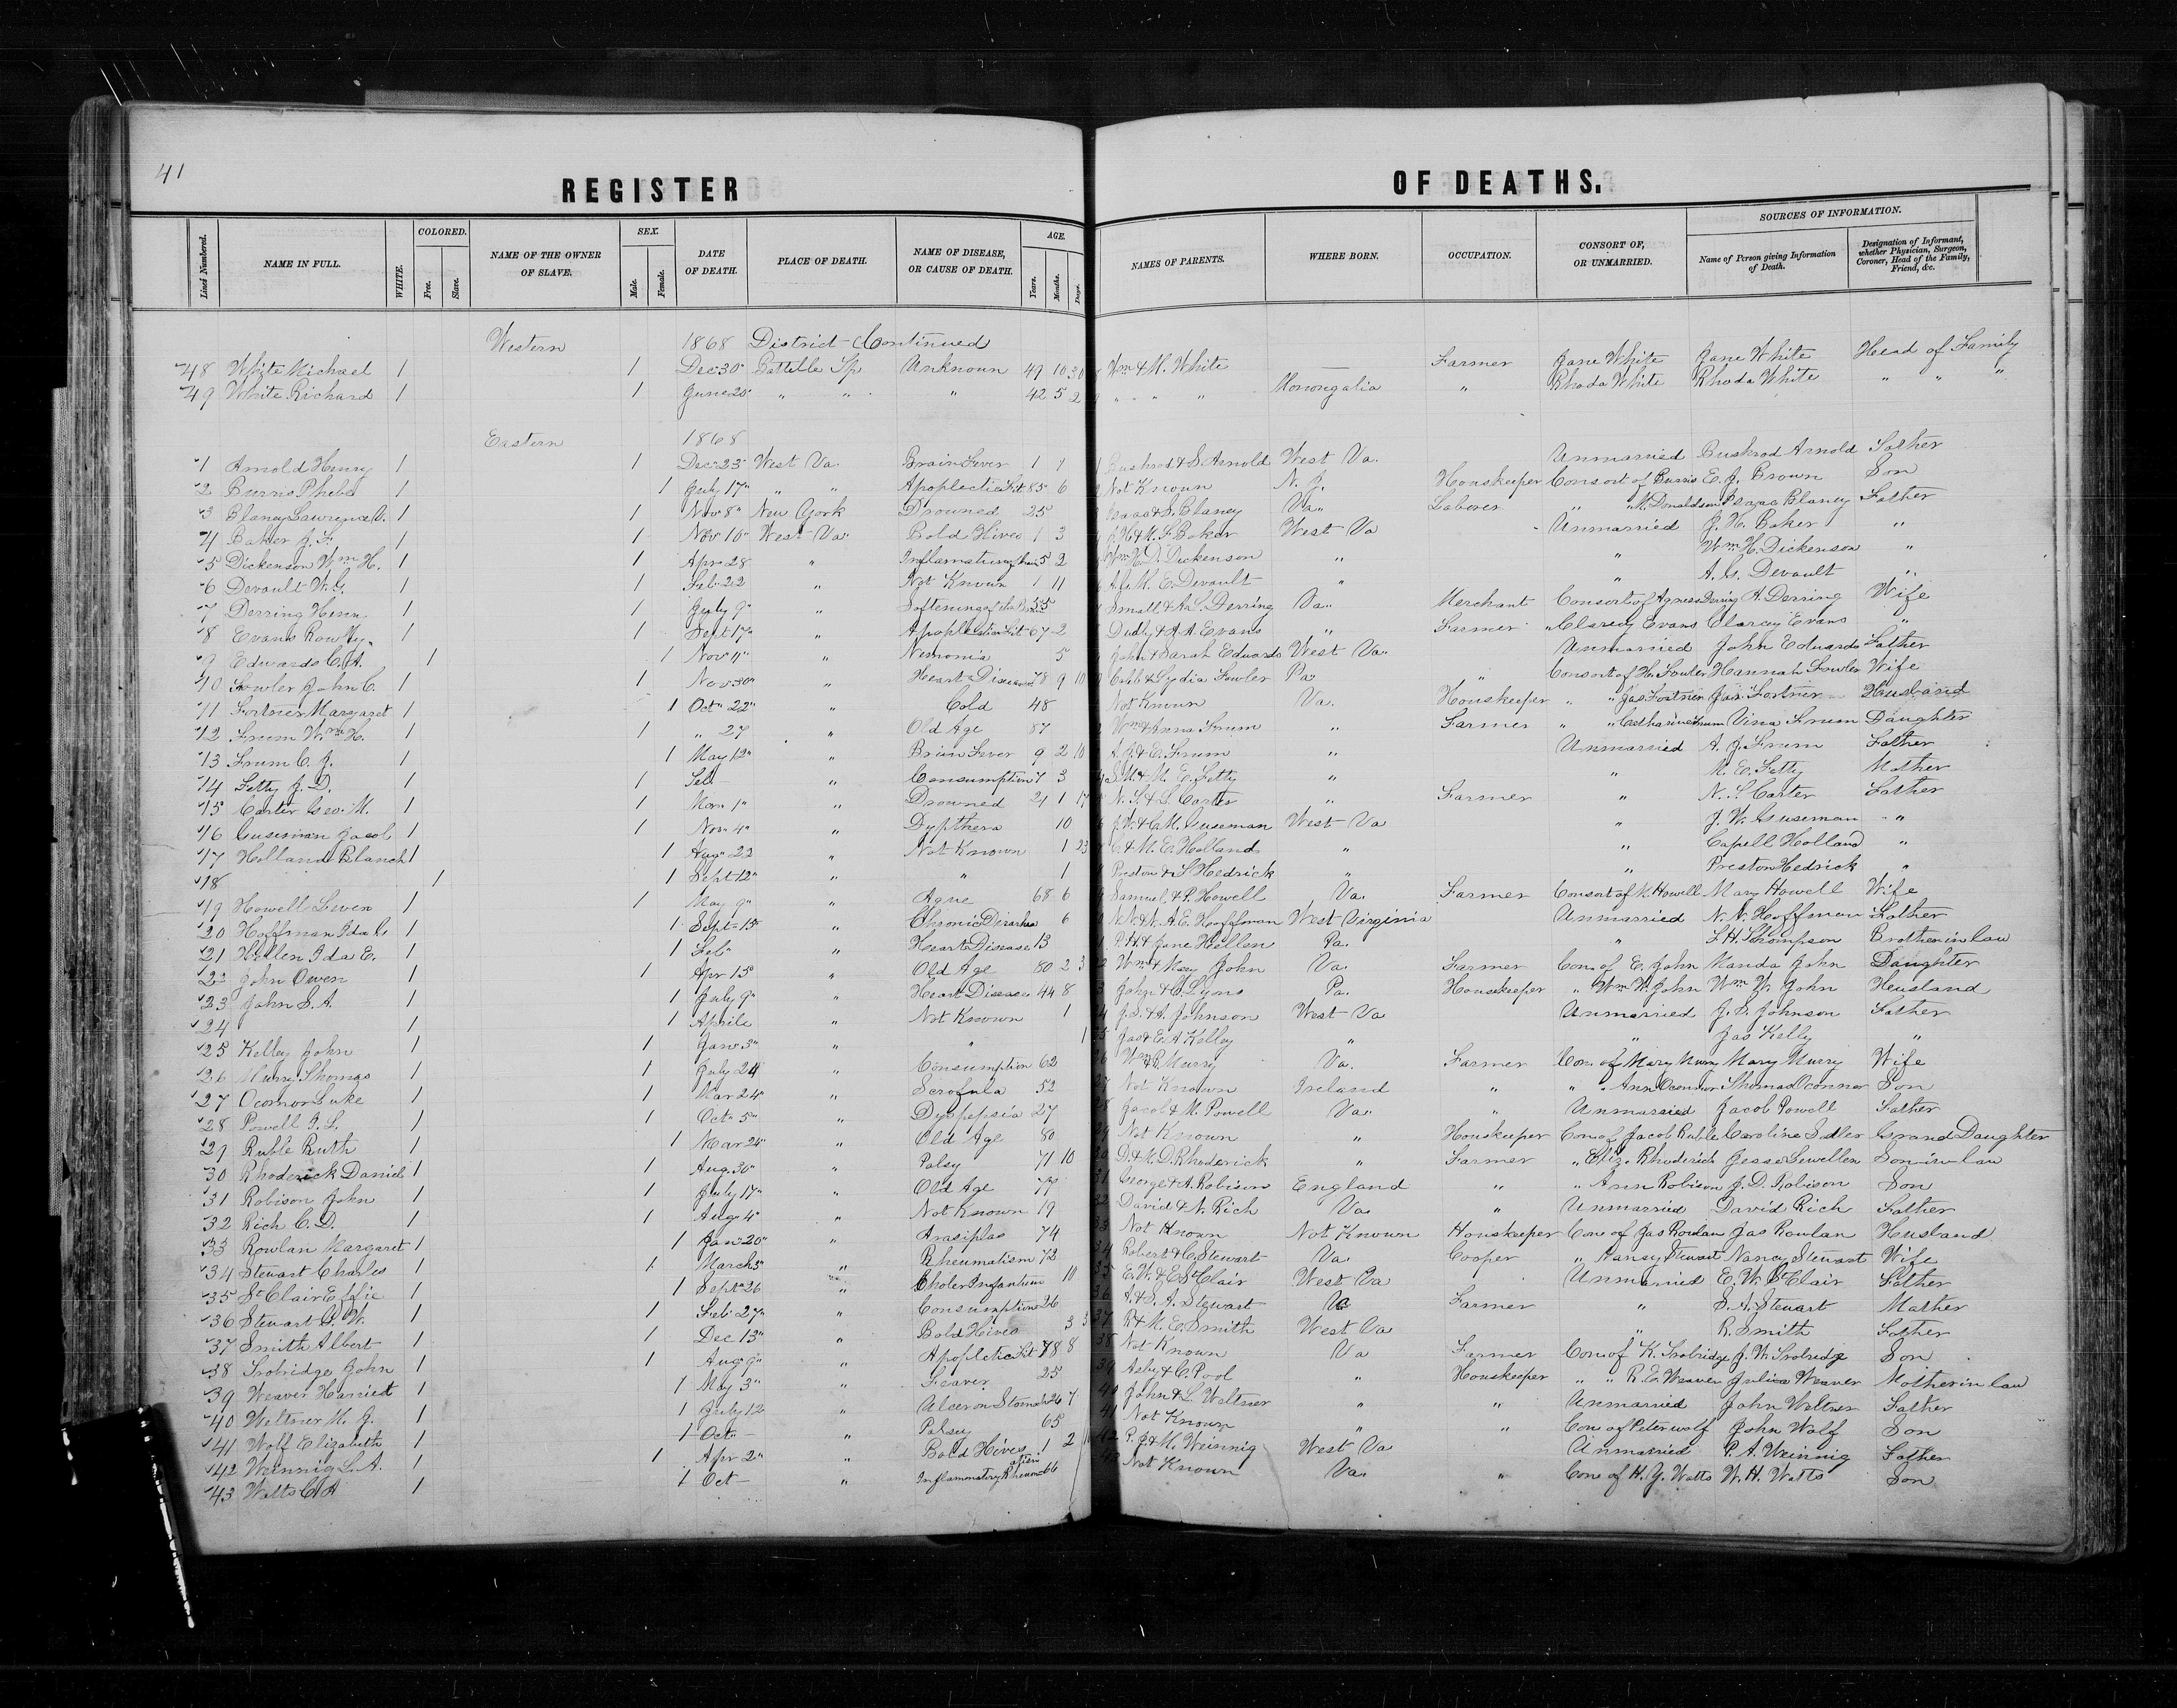 41
REGISTER OF DEATHS.
Lined Numbered. NAME IN FULL. WHITE. COLORED. Free. Slave. NAME OF THE OWNER OF SLAVE. SEX. Male. Female. DATE OF DEATH. PLACE OF DEATH. NAME OF DISEASE, OR CAUSE OF DEATH. AGE. Years. Months. Days. NAMES OF PARENTS. WHERE BORN. OCCUPATION. CONSORT OF, OR UNMARRIED. SOURCES OF INFORMATION. Name of Person giving Information of Death. Designation of Informant, whether Physician, Surgeon, Coroner, Head of the Family, Friend, &c.
Western 1868 District Continued
48 White Michael 1 1 Dec 30 Battelle Tp Unknown 49 10 30 Wm & M. White — Farmer Jane White Jane White Head of Family
49 White Richard 1 1 June 20 " " " 42 5 2 " " " " Monongalia " Rhoda White Rhoda White " " "
Eastern 1868
1 Arnold Henry 1 1 Dec 23 West Va. Brain Fever 1 1 Bushrod & S Arnold West Va. Unmarried Bushrod Arnold Father
2 Burris Phebe 1 1 July 17" " " Apoplectic Fit 85 6 Not Known N. J. Houskeeper Consort of Burris E. J. Brown Son
3 Blaney Lawrence 1 1 Nov 8" New York Drowned 25 Isaac & S. Blaney Va " Laborer " " M. Donaldson Isaac Blaney Father
4 Baker J. F. 1 1 Nov 10" West Va. Bold Hives 1 3 J. H. & M. F. Baker West Va Unmarried J. H. Baker "
5 Dickenson Wm H. 1 1 Apr 28 " 5 2 Wm H. D. Dickenson " " Wm H. Dickenson "
6 Devault W. G. 1 1 Feb 22 " Not Known 1 11 A. G. M. E. Devault " " A. G. Devault "
7 Derring Henry 1 1 July 9" " Softening of the B 55 Small & A. L. Derring Va " Merchant Consort of Agness Derring A. Derring Wife
8 Evans Rowly 1 1 Sept 17" " Fit 67 2 Dudly & A A Evans " Farmer " Clarecy Evans Clarcey Evans "
9 Edwards C. A. 1 1 Nov 11" " Nemonia 5 John & Sarah Edwards West Va. Unmarried John Edwards Father
10 Fowler John C. 1 1 Nov 30" " Heart Disease 78 9 10 Caleb & Lydia Fowler Pa " " Consort of H. Fowler Hannah Fowler Wife
11 Fortner Margaret 1 1 Oct " 22" " Cold 48 Not Known Va. Houskeeper " " Jas Fortner Jas. Fortner Husband
12 Frum Wm H. 1 1 " 27 " Old Age 87 Wm & Anna Frum " Farmer " " Catharine Frum Vina Frum Daughter
13 Frum C. J. 1 1 May 12" " Brain Fever 9 2 10 A. J. & E. Frum " Unmarried A. J. Frum Father
14 Fetty J. D. 1 1 Feb — " Consumption 7 3 S. M. & M. E. Fetty " " M. E. Fetty Mother
15 Carter Geo. M. 1 1 Mar 1" " Drowned 21 1 17 N. S. & S. Carter " Farmer " N. S. Carter Father
16 Guseman Jacob 1 1 Nov 4" " Dypthera 10 J. W. & C. M. Guseman West Va " J. W. Guseman "
17 Holland Blanch 1 1 Aug 22 " Not Known 1 23 C. & M. E. Holland " " Capell Holland "
18 1 1 Sept 12" " " 1 Preston & S Hedrick " " Preston Hedrick "
19 Howell Leven 1 1 May 9" " Ague 68 6 Samuel & P. Howell Va. Farmer Consort of M. Howell Mary Howell Wife
20 Hoffman Ida 1 1 Sept 15" " Chronic Diarhea 6 N. N. & A. E. Hoffman West Virginia Unmarried N. N. Hoffman Father
21 Hellen Ida E. 1 1 Feb " " Heart Disease 13 P. H. & Jane Hellen Pa. " F. H. Thompson Brother in law
22 John Owen 1 1 Apr 15" " Old Age 80 2 3 Wm & Mary John Va. Farmer Con of E. John Manda John Daughter
23 John S. A. 1 1 July 9" " Heart Disease 44 8 John & C Lyons Pa. Houskeeper " Wm W. John Wm W. John Husland
24 1 1 Aprile " Not Known 1 J. S. & A. Johnson West Va Unmarried J. S. Johnson Father
25 Kelley John 1 1 Jan 3" " " 1 Jas & E. A Kelley " " Jas Kelly "
26 Murry Thomas 1 1 July 24 " Consumption 62 Wm & R. Murry Va. Farmer Con of Mary Murry Mary Murry Wife
27 Oconor Luke 1 1 Mar 24" " Scrofula 52 Not Known Ireland " " " Ann Oconnor Thomas Oconnor Son
28 Powell J. L. 1 1 Oct 5" " Dyspepsia 27 Jacob & M. Powell Va " " Unmarried Jacob Powell Father
29 Ruble Ruth 1 1 Mar 24" " Old Age 80 Not Known " Houskeeper Con of Jacob Ruble Caroline Sidler Grand Daughter
30 Rhoderick Daniel 1 1 Aug 30" " Palsy 71 10 D. & M. D. Rhoderick " Farmer " Eliz. Rhoderick Jesse Lewellen Son in law
31 Robison John 1 1 July 17" " Old Age 77 George & A. Robison England " " Ann Robison J. D. Robison Son
32 Rich C. D. 1 1 Aug 4" " Not Known 19 David & N. Rich Va. " Unmarried David Rich Father
33 Rowlan Margaret 1 1 Jan 20" " Arasiplas 74 Not Known Not Known Houskeeper Con of Jas Rowlan Jas Rowlan Husland
34 Stewart Charles 1 1 March 3" " Rheumatism 72 Robert & C Stewart Va. Cooper " Nansy Stewart Nancy Stewart Wife
35 St Clair Effie 1 1 Sept 26 " Choler Infantum 10 E. W. & E. St Clair West Va Unmarried E. W. St Clair Father
36 Stewart J. W. 1 1 Feb 27" " Consumption 26 A. & S. A. Stewart Va Farmer " S. A. Stewart Mother
37 Smith Albert 1 1 Dec 13" " Bold Hives 3 3 R & M. E. Smith West Va " R. Smith Father
38 Trobridge John 1 1 Aug 9" " Apopletic Fit 78 8 Not Known Va Farmer Con of K. Trobridge J. W. Trobridge Son
39 Weaver Harriet 1 1 May 3" " Feaver 25 Asby & C. Pool " Houskeeper " " R. E. Weaver Julica Weaver Mother in law
40 Weltner M. J. 1 1 July 12 " Ulcer on Stomah 26 7 John & L. Weltner " " Unmarried John Weltner Father
41 Wolf Elizabeth 1 1 Oct — " Palsey 65 Not Known " " Con of Peter wolf John Wolf Son
42 Weinnig L. A. 1 1 Apr 2" " Bold Hives 1 2 P. J. & M. Weinnig West Va Unmarried P. A. Weinnig Father
43 Watts C A 1 1 Oct — " Inflammatory Rheumatism 66 Not Known Va. " Con of H. Y. Watts W. H. Watts Son